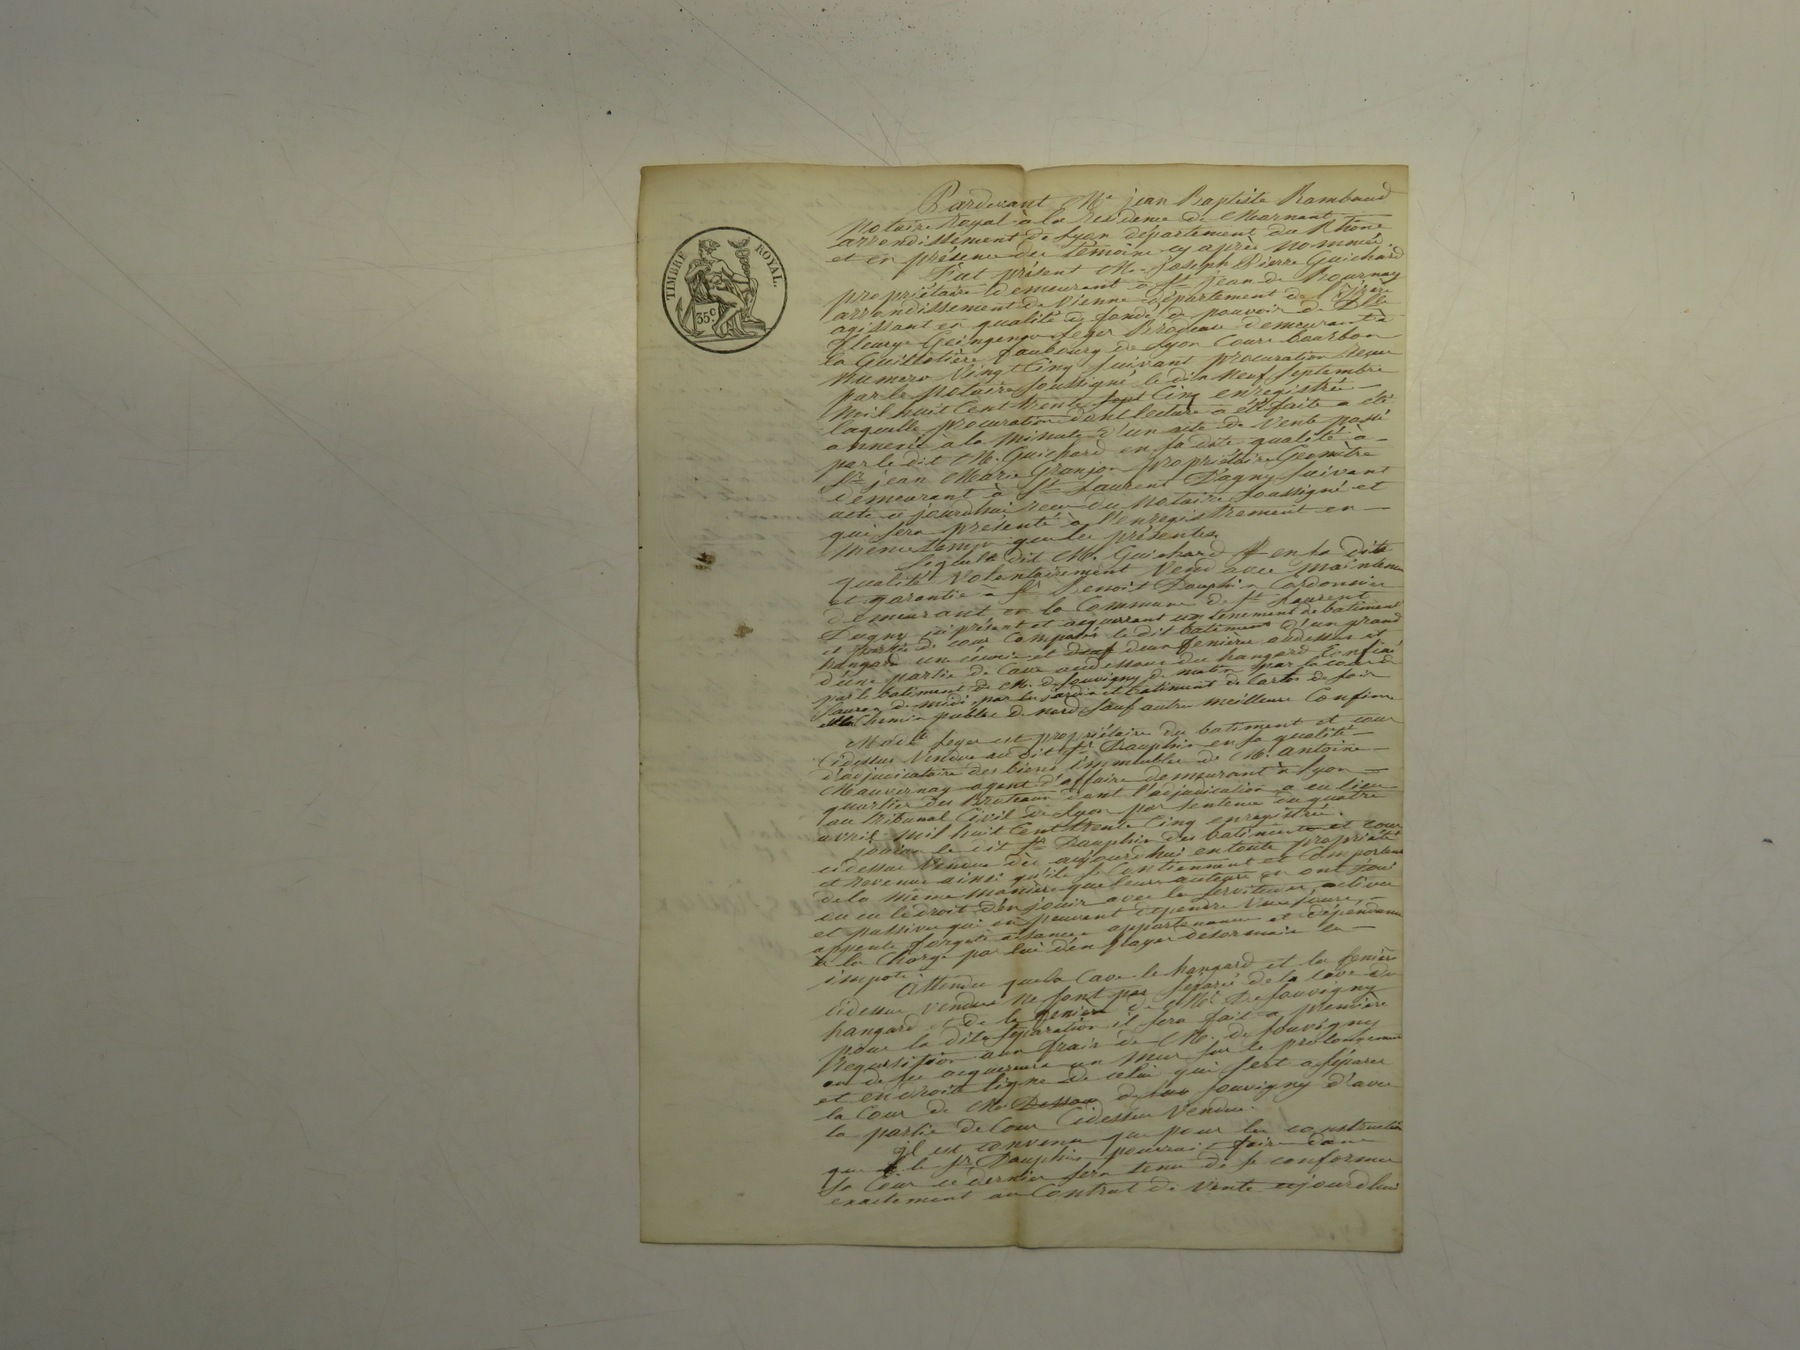 TIMBRE ROYAL.
35c
Pardevant Me jean Baptiste Rambaud
Notaire Royal à la Residence de Mornant
arrondissement de Lyon département du Rhône
et en présence des témoins cy après nommés
Fut présent Mr joseph Pierre Guichard
propriétaire demeurant à St jean de Bournay
arrondissement de Vienne département de l'Isère
agissant en qualité de fondé de pouvoir de Dlle
Fleurye Leger Brodeuse demeurant à
la Guillotière faubourg de Lyon Cours bourbon
numero Vingt Cinq suivant procuration Reçue
par le Notaire soussigné le dix Neuf Septembre
Mil huit Cent trente sept Cinq enregistrée
laquelle procuration dont lecture a été faite a été
annexée à la Minute d'un acte de Vente passé
par le dit Mr. Guichard en sa dite qualité à
Sr jean Marie Granjon propriétaire Géomètre
demeurant à St Laurent D'agny suivant
acte ce jourdhui reçu du Notaire soussigné et
qui sera présenté à l'enregistrement en
même temps que les présentes
Lequel dit Mr. Guichard en sa dite
qualité Volontairement Vend avec Maintenue
et garantie à Sr Benoit Dauphin Cordonnier
demeurant en la Commune de St Laurent
Dagny ici présent et acquerrant un tenement de batiment
et partie de cour Composés le dit batiment d'un grand
hangard un écurie et d'un fenière audessus et
d'une partie de Cave audessous du hangard Confiné
par le batiment de Mr. de Souvigny de matin par la cour de
de midi par le jardin et batiment de de soir
Chemin public de nord sauf autre meilleurs Confins
Madlle Leger est propriétaire du batiment et cour
Cidessus Vendus au dit Sr Dauphin en sa qualité
d'adjudicataire des biens immeubles de Mr. Antoine
Mauvernay agent d'affaire demeurant à Lyon
quartier des Broteaux dont l'adjudication a eu lieu
au Tribunal Civil de Lyon par sentence du quatre
avril Mil huit Cent trente Cinq enregistrée.
jouira le dit Sr Dauphin des batiments et cour
cidessus Vendus dès aujourdhui en toute propriété
et Revenus ainsi qu'ils se Contiennent et Comportent
de la même manière que leurs auteurs en ont joui
ou eu le droit d'en jouir avec les servitudes actives
et passives qui en peuvent dépendre
appartenances et dépendances
à la Charge par lui d'en payer désormais les
impots
Attendu que la Cave le hangard et la fenière
cidessus vendus ne sont pas séparés de la Cave du
hangard et de la fenière de Mr De Souvigny
pour la dite séparation il sera fait à première
Requisition aux frais de Mr. de Souvigny
ou de ses acquereurs un Mur sur le prolongement
et en droite ligne de celui qui sert a séparer
la Cour de Mr de Souvigny d'avec
la partie de Cour Cidessus Vendue.
il est convenu que pour les constructions
que le Sr Dauphin pourrait faire dans
sa Cour ce dernier sera tenu de se conformer
exactement au Contrat de Vente aujourdhui